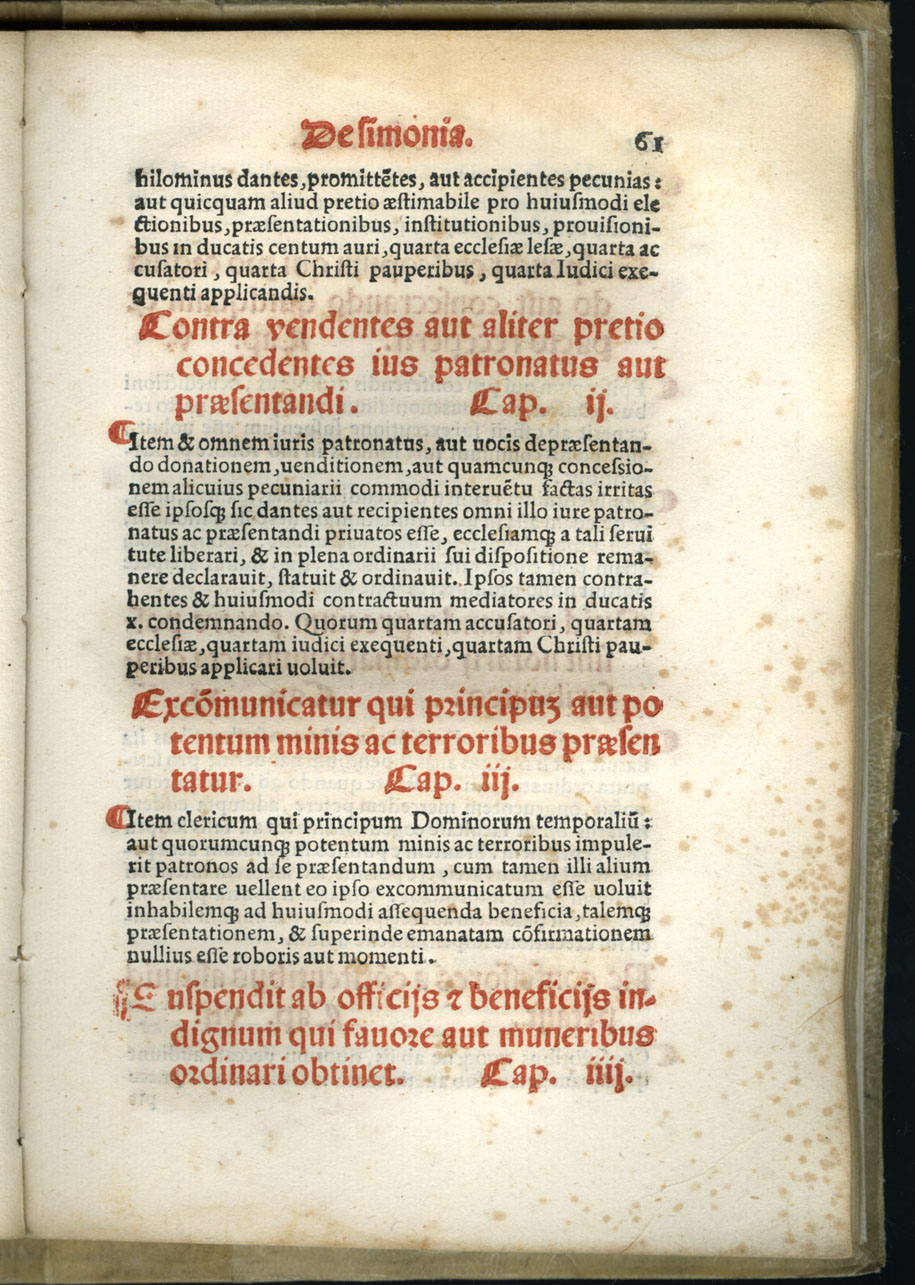 De simonia.
61
hilominus dantes, promittētes, aut accipientes pecunias:
aut quicquam aliud pretio æstimabile pro huiusmodi ele
ctionibus, præsentationibus, institutionibus, prouisioni-
bus in ducatis centum auri, quarta ecclesiæ lesæ, quarta ac
cusatori, quarta Christi pauperibus, quarta Iudici exe-
quenti applicandis.
Contra vendentes aut aliter pretio
concedentes ius patronatus aut
præsentandi. Cap. ij.
¶Item & omnem iuris patronatus, aut uocis depræsentan-
do donationem, uenditionem, aut quamcunqꝫ concessio-
nem alicuius pecuniarii commodi interuētu factas irritas
esse ipsosqꝫ sic dantes aut recipientes omni illo iure patro-
natus ac præsentandi priuatos esse, ecclesiamqꝫ a tali serui
tute liberari, & in plena ordinarii sui dispositione rema-
nere declarauit, statuit & ordinauit. Ipsos tamen contra-
hentes & huiusmodi contractuum mediatores in ducatis
x. condemnando. Quorum quartam accusatori, quartam
ecclesiæ, quartam iudici exequenti, quartam Christi pau-
peribus applicari uoluit.
Excōmunicatur qui principuꝫ aut po
tentum minis ac terroribus præsen
tatur. Cap. iij.
¶Item clericum qui principum Dominorum temporaliū:
aut quorumcunqꝫ potentum minis ac terroribus impule-
rit patronos ad se præsentandum, cum tamen illi alium
præsentare uellent eo ipso excommunicatum esse uoluit
inhabilemqꝫ ad huiusmodi assequenda beneficia, talemqꝫ
præsentationem, & superinde emanatam cōfirmationem
nullius esse roboris aut momenti.
Suspendit ab officijs ⁊ beneficijs in-
dignum qui fauore aut muneribus
ordinari obtinet. Cap. iiij.